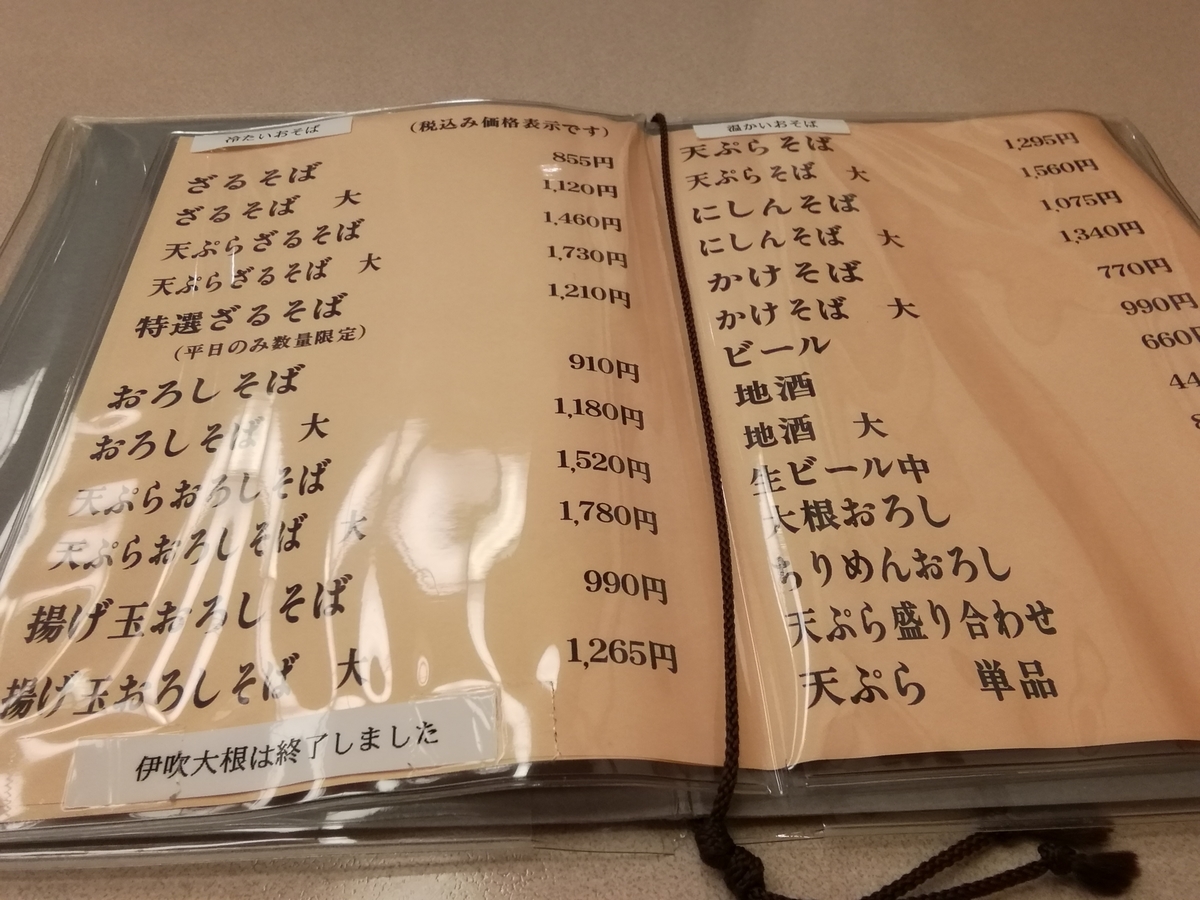 冷たいおそば
(税込み価格表示です)
ざるそば 855円
ざるそば 大 1,120円
天ぷらざるそば 1,460円
天ぷらざるそば 大 1,730円
特選ざるそば 1,210円
(平日のみ数量限定)
おろしそば 910円
おろしそば 大 1,180円
天ぷらおろしそば 1,520円
天ぷらおろしそば 大 1,780円
揚げ玉おろしそば 990円
揚げ玉おろしそば 大 1,265円
伊吹大根は終了しました
温かいおそば
天ぷらそば 1,295円
天ぷらそば 大 1,560円
にしんそば 1,075円
にしんそば 大 1,340円
かけそば 770円
かけそば 大 990円
ビール 660円
地酒 44
地酒 大
生ビール中
大根おろし
ちりめんおろし
天ぷら盛り合わせ
天ぷら 単品